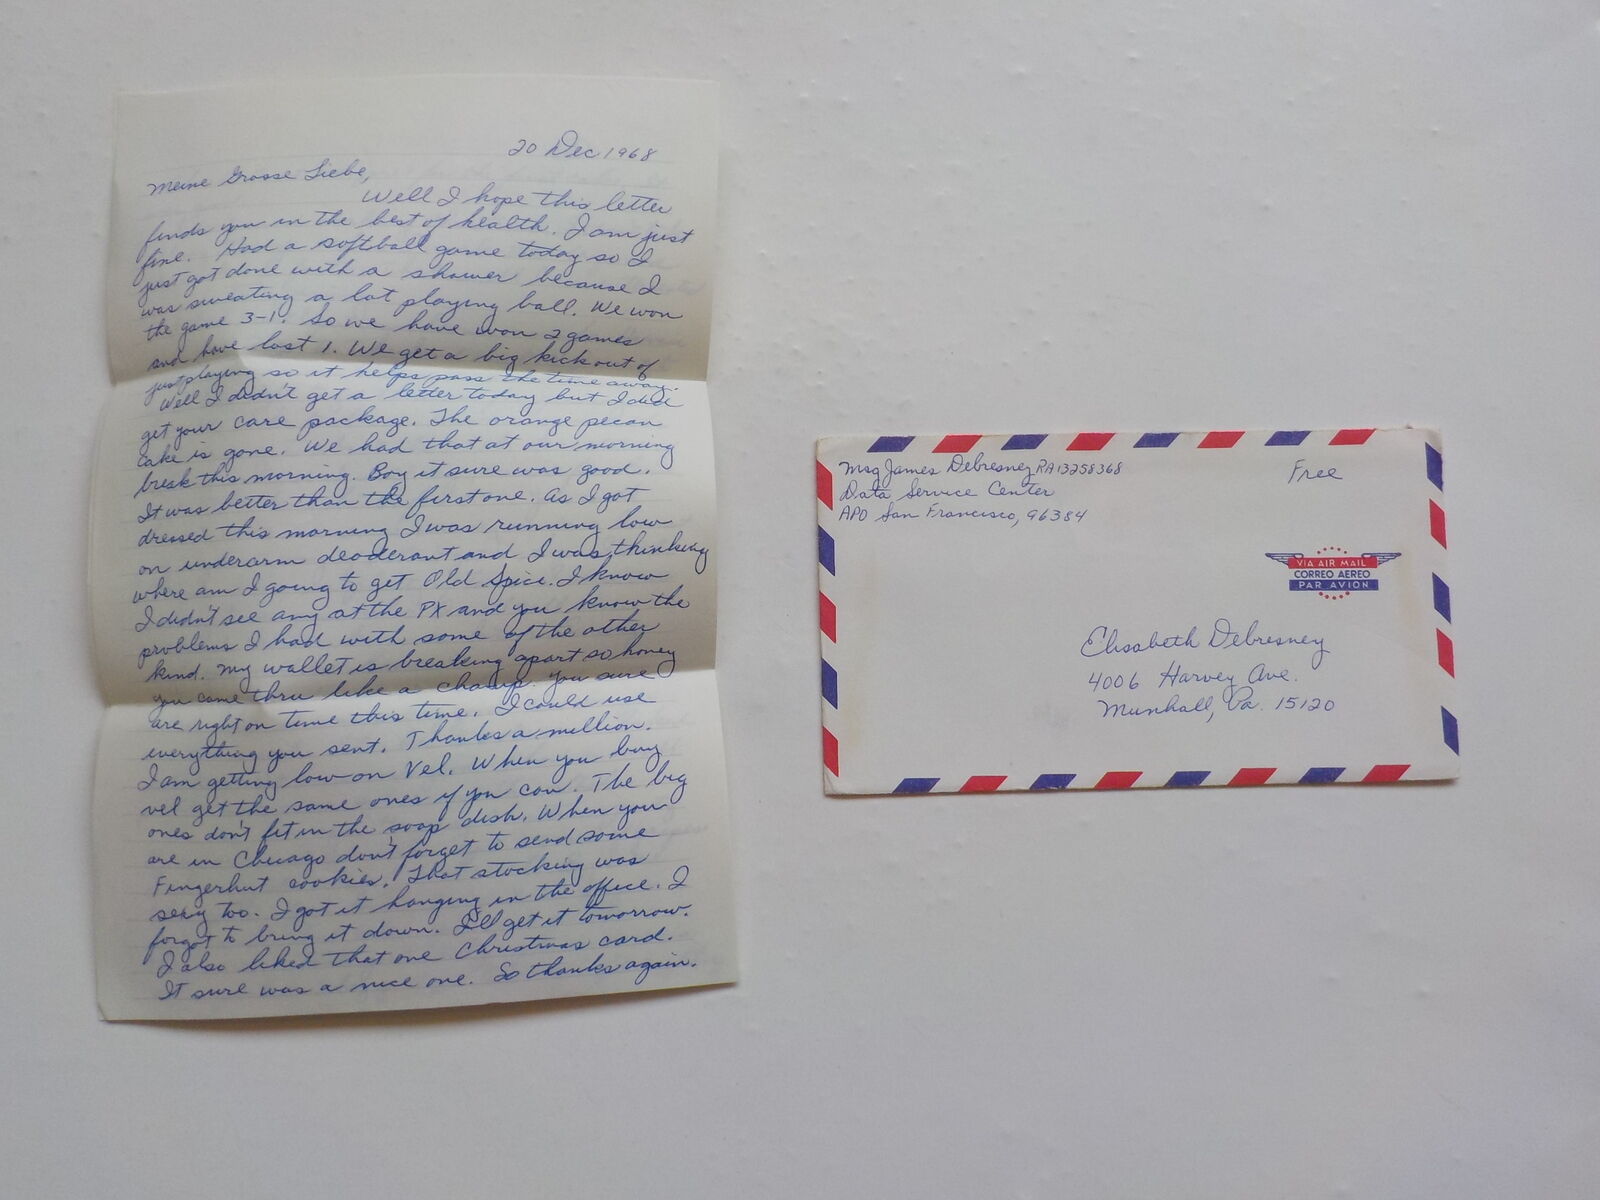 20 Dec 1968
Meine Grosse Liebe,
Well I hope this letter
finds you in the best of health. I am just
fine. Had a softball game today so I
just got done with a shower because I
was sweating a lot playing ball. We won
the game 3-1. So we have won 2 games
and have lost 1. We get a big kick out of
just playing so it helps pass the time away.
Well I didn't get a letter today but I did
get your care package. The orange pecan
cake is gone. We had that at our morning
break this morning. Boy it sure was good.
It was better than the first one. As I got
dressed this morning I was running low
on underarm deoderant and I was thinking
where am I going to get Old Spice. I know
I didn't see any at the PX and you know the
problems I had with some of the other
kind. My wallet is breaking apart so honey
you came thru like a champ. You sure
are right on time this time. I could use
everything you sent. Thanks a million.
I am getting low on Vel. When you buy
vel get the same ones if you can. The big
ones don't fit in the soap dish. When you
are in Chicago don't forget to send some
Fingerhut cookies. That stocking was
sexy too. I got it hanging in the office. I
forgot to bring it down. I'll get it tomorrow.
I also liked that one Christmas card.
It sure was a nice one. So thanks again.
Msg James Debresney RA13258368
Data Service Center
APO San Francisco, 96384
Free
VIA AIR MAIL
CORREO AEREO
PAR AVION
Elisabeth Debresney
4006 Harvey Ave.
Munhall, Pa. 15120